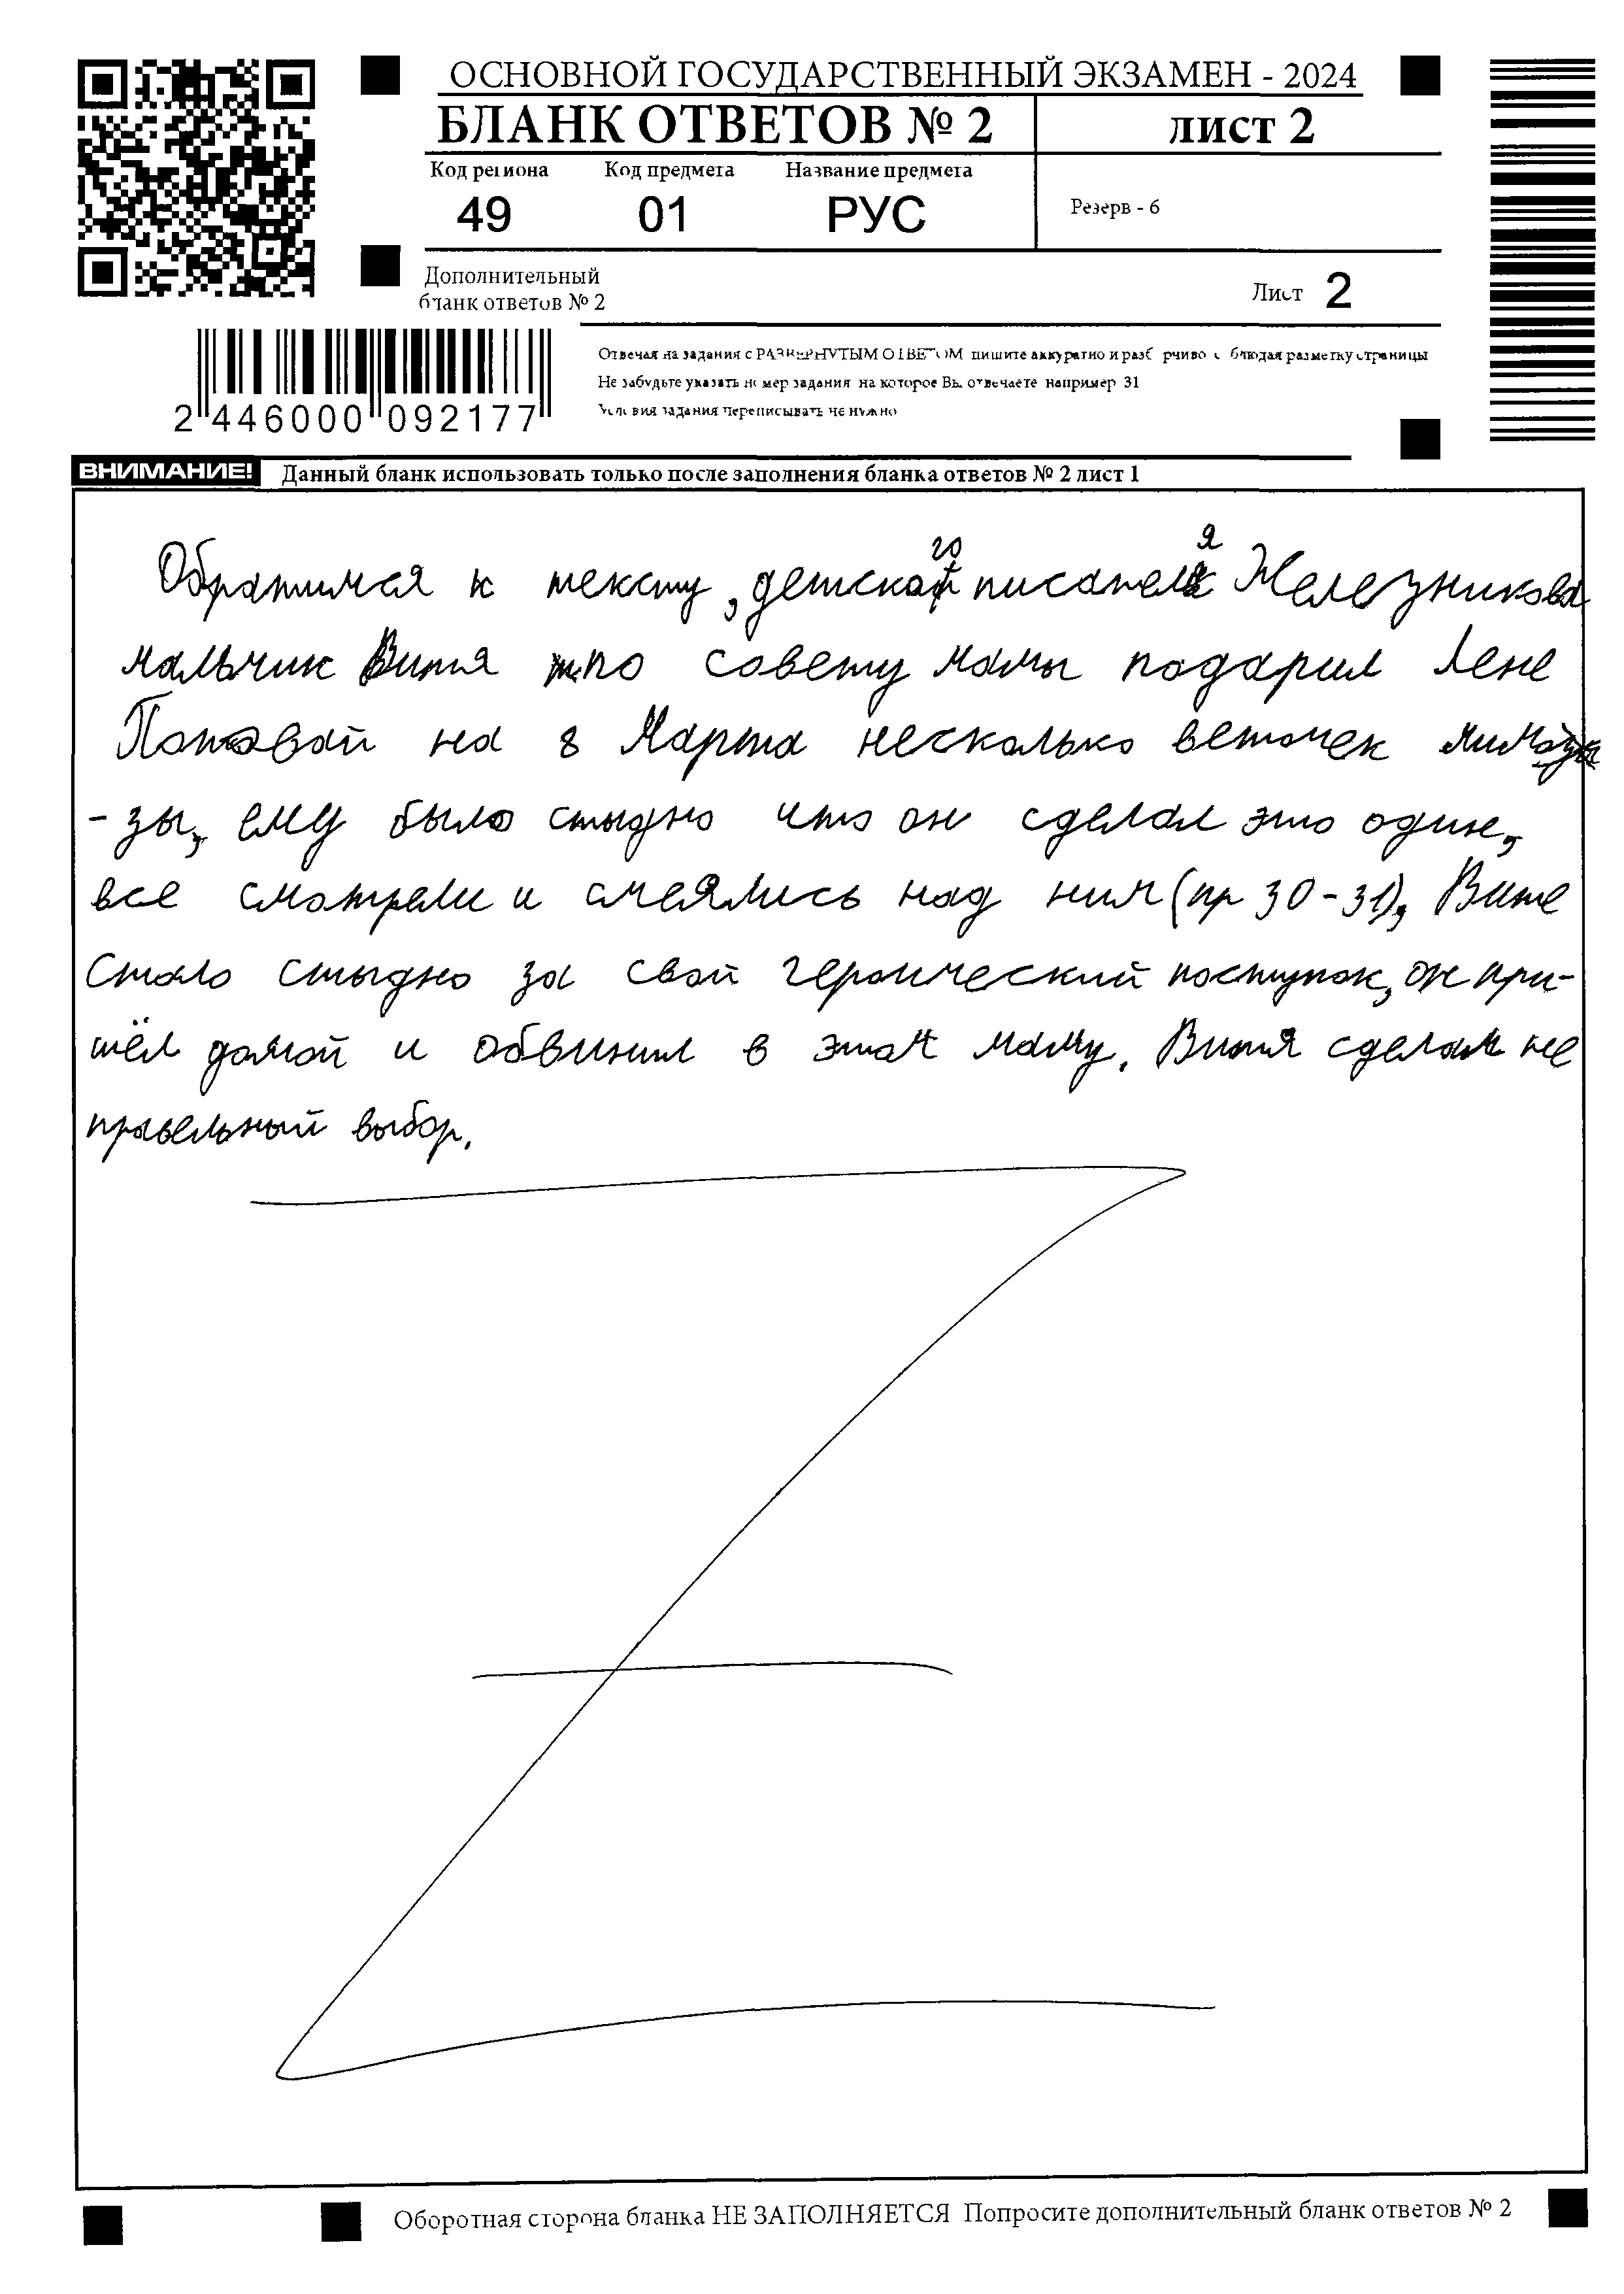 ОСНОВНОЙ ГОСУДАРСТВЕННЫЙ ЭКЗАМЕН - 2024
БЛАНК ОТВЕТОВ № 2
лист 2
Код региона
Код предмета
Название предмета
49
01
РУС
Резерв - 6
Дополнительный
бланк ответов № 2
Лист 2
2 446000 092177
Отвечая на задания с РАЗВЕРНУТЫМ ОТВЕТОМ пишите аккуратно и разборчиво соблюдая разметку страницы
Не забудьте указать номер задания на которое Вы отвечаете например 31
Условия задания переписывать не нужно
ВНИМАНИЕ! Данный бланк использовать только после заполнения бланка ответов № 2 лист 1
Обратимся к тексту, детского писателя Железникова
мальчик Витя по совету мамы подарил Лене
Поповой на 8 Марта несколько веточек мимо
-зы, ему было стыдно что он сделал это один,
все смотрели и смеялись над ним (пр 30-31), Вите
стало стыдно за свой героический поступок, он при-
шёл домой и обвинил в этом маму. Витя сделал не
правельный выбор.
Оборотная сторона бланка НЕ ЗАПОЛНЯЕТСЯ Попросите дополнительный бланк ответов № 2